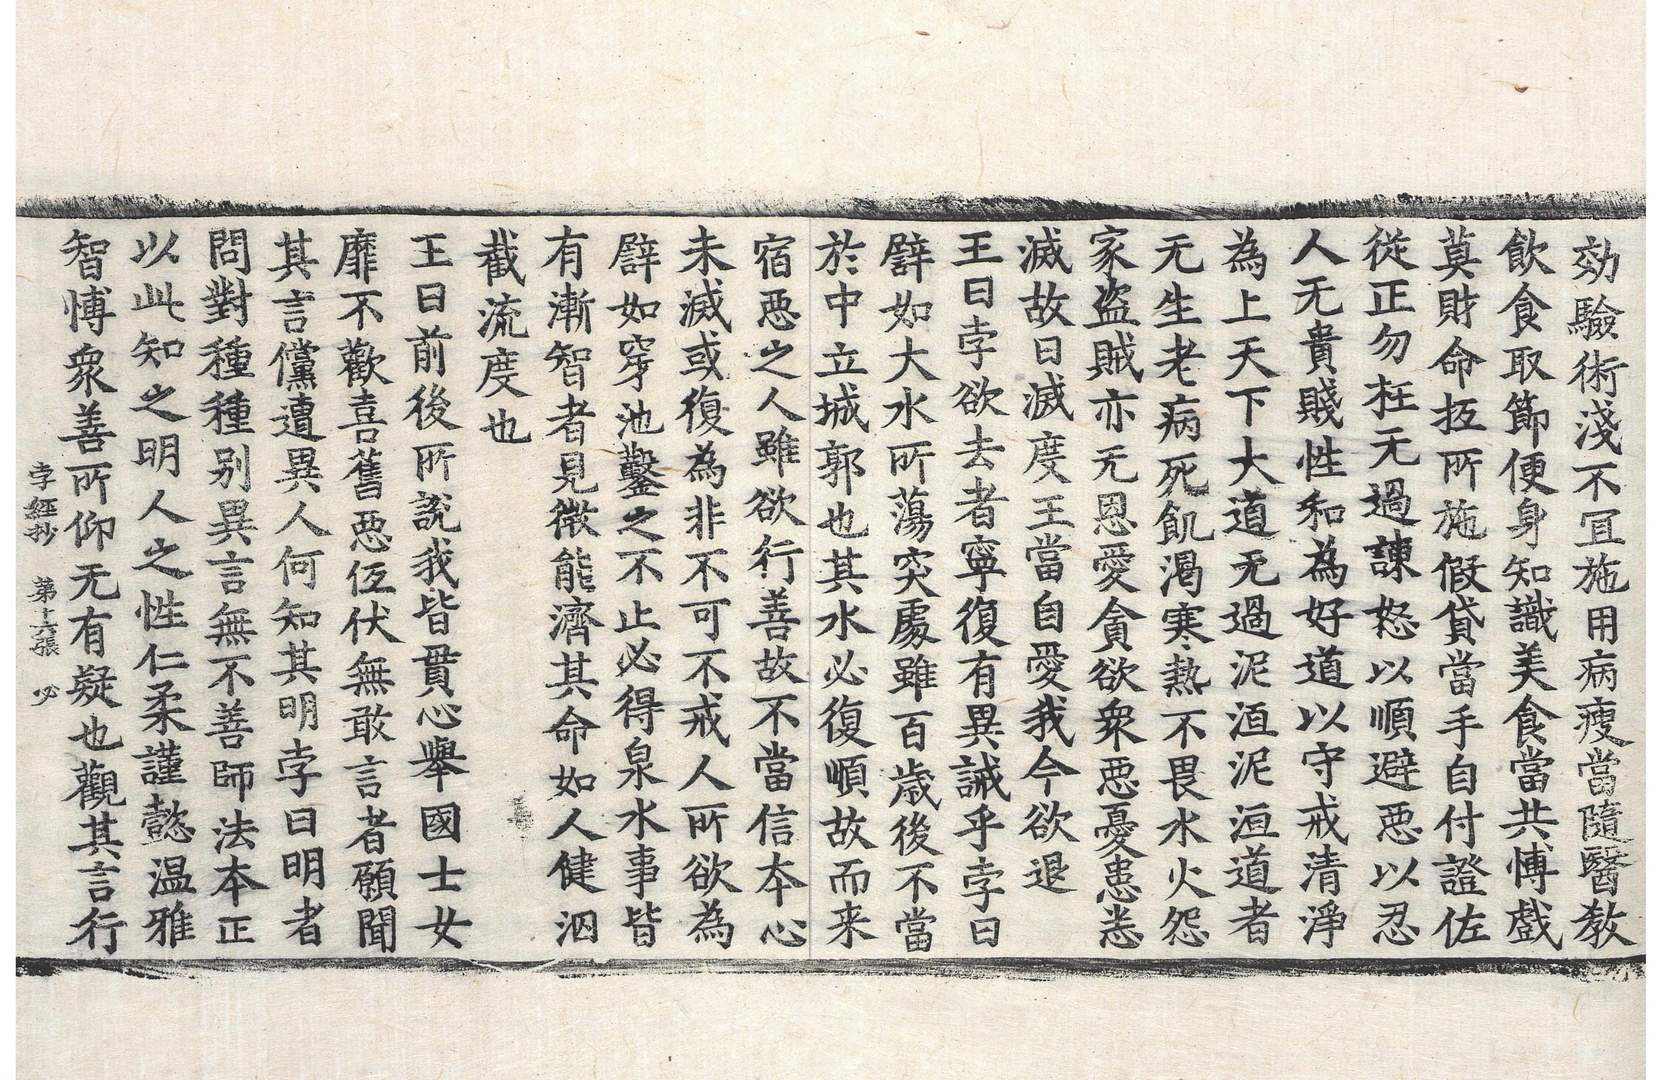 効驗術淺不冝施用病瘦當隨醫教
飲食取節便身知識美食當共愽戲
莫財命抂所施假貸當手自付證佐
從正勿枉无過諫怒以順避惡以忍
人无貴賤性和為好道以守戒清淨
為上天下大道无過泥洹泥洹道者
无生老病死飢渴寒熱不畏水火怨
家盗賊亦无恩愛貪欲衆惡憂患悉
滅故曰滅度王當自愛我今欲退
王曰孛欲去者寧復有異誡乎孛曰
譬如大水所蕩突處雖百歲後不當
於中立城郭也其水必復順故而来
宿惡之人雖欲行善故不當信夲心
未滅或復為非不可不戒人所欲為
譬如穿池鑿之不止必得泉水事皆
有漸智者見微能濟其命如人健泅
截流度也
王曰前後所說我皆貫心舉國士女
靡不歡喜舊惡伍伏無敢言者願聞
其言儻遭異人何知其明孛曰明者
問對種種别異言無不善師法夲正
以此知之明人之性仁柔謹懿温雅
智愽衆善所仰无有疑也觀其言行
孛經抄 第十六張 必